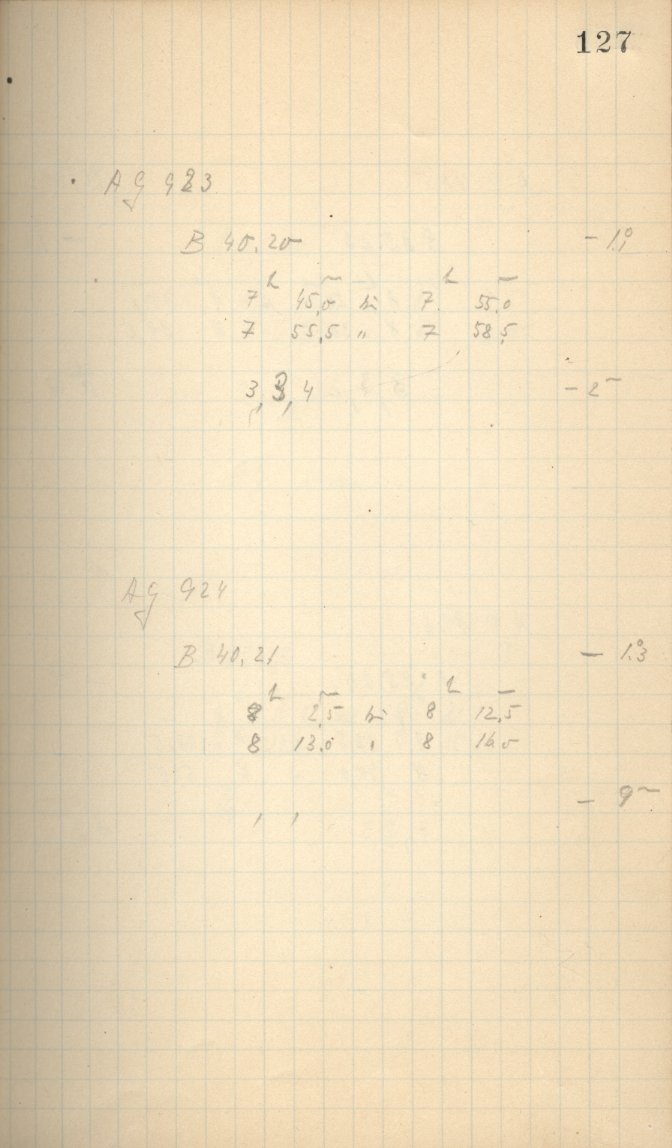 127
AG 923
B 40.20 - 1°,1
h m h m
7 45,0 bis 7 55,0
7 55,5 " 7 58,5
3, 3, 4 - 2m
AG 924
B 40.21 - 1°.3
h m h m
8 2,5 bis 8 12,5
8 13,0 " 8 16,0
, , - 9m